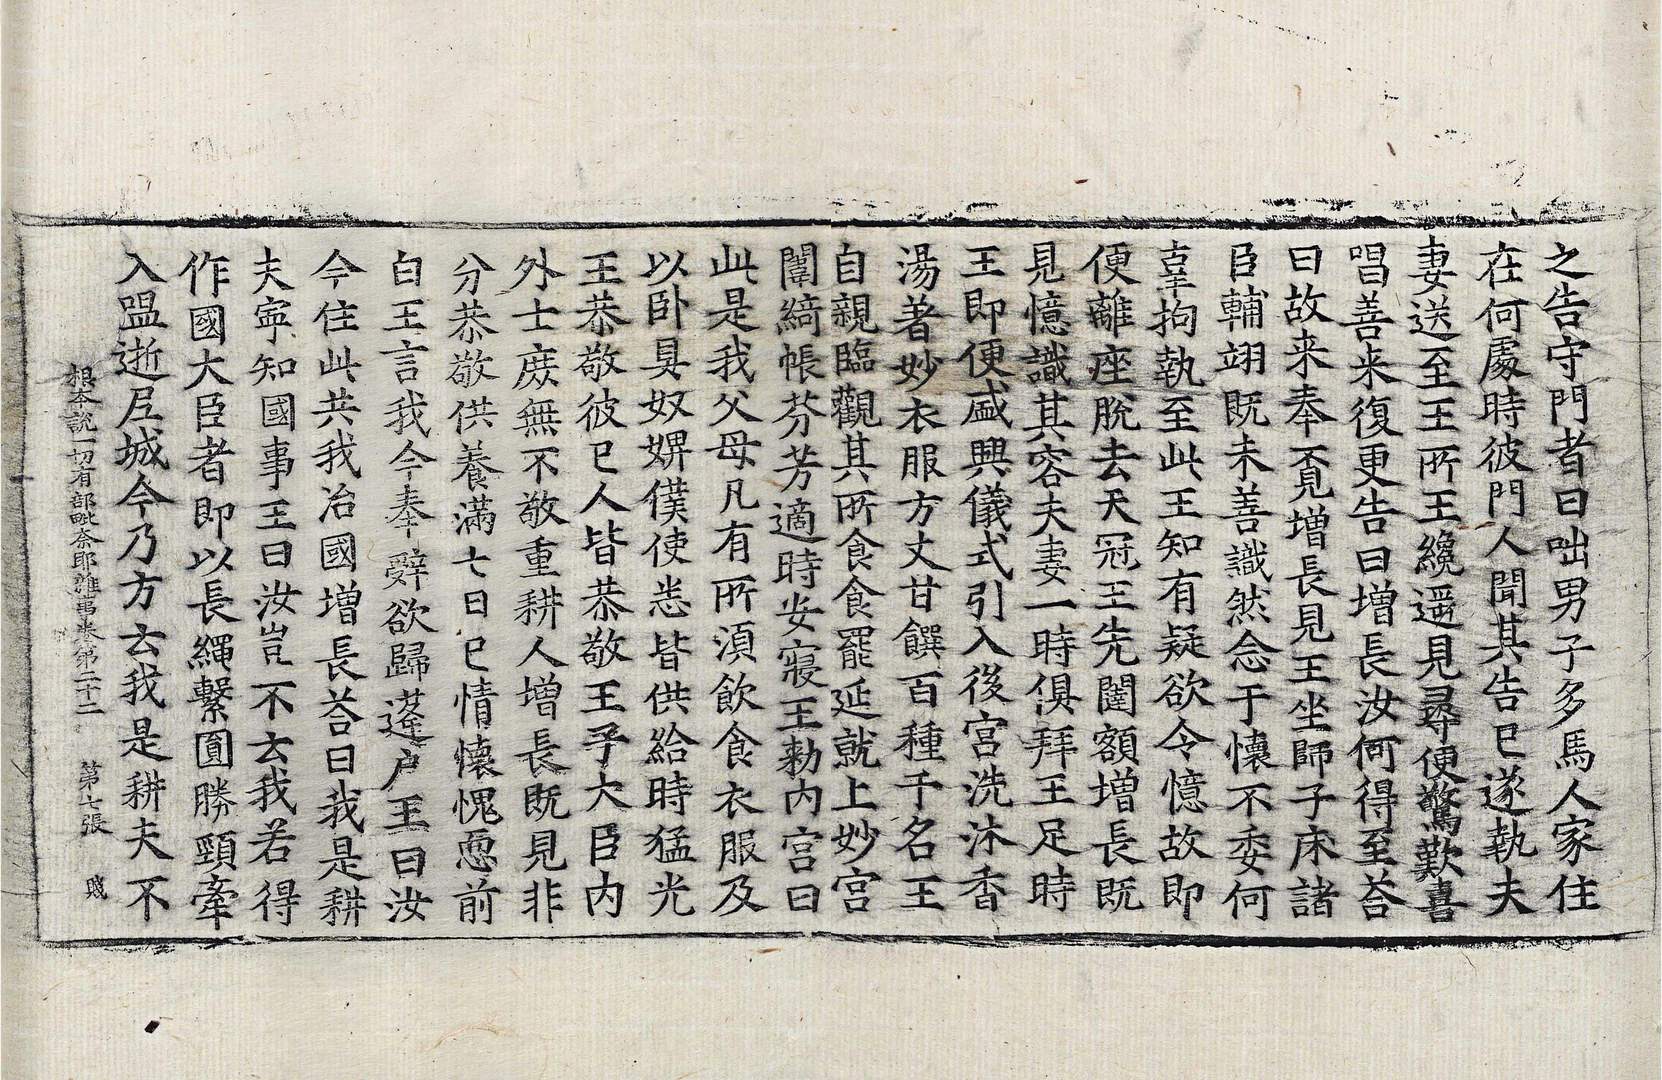 之告守門者曰咄男子多馬人家住
在何處時彼門人聞其告已遂執夫
妻送至王所王纔遥見尋便驚歎喜
唱善来復更告曰增長汝何得至荅
曰故来奉覔增長見王坐師子床諸
臣輔翊既未善識然念于懷不委何
辜拘執至此王知有疑欲令憶故即
便離座脫去天冠王先闊額增長既
見憶識其容夫妻一時俱拜王足時
王即便盛興儀式引入後宮洗沐香
湯著妙衣服方丈甘饌百種千名王
自親臨觀其所食食罷延就上妙宮
闈綺帳芬芳適時安寢王勑內宮曰
此是我父母凡有所湏飲食衣服及
以卧具奴婢僕使悉皆供給時猛光
王恭敬彼已人皆恭敬王子大臣內
外士庶無不敬重耕人增長既見非
分恭敬供養滿七日已情懷愧恧前
白王言我今奉辭欲歸蓬户王曰汝
今住此共我治國增長荅曰我是耕
夫寧知國事王曰汝豈不去我若得
作國大臣者即以長繩繫圓勝頸牽
入嗢逝尼城今乃方去我是耕夫不
根本說一切有部毗奈耶雜事卷第二十二 第七張 賤